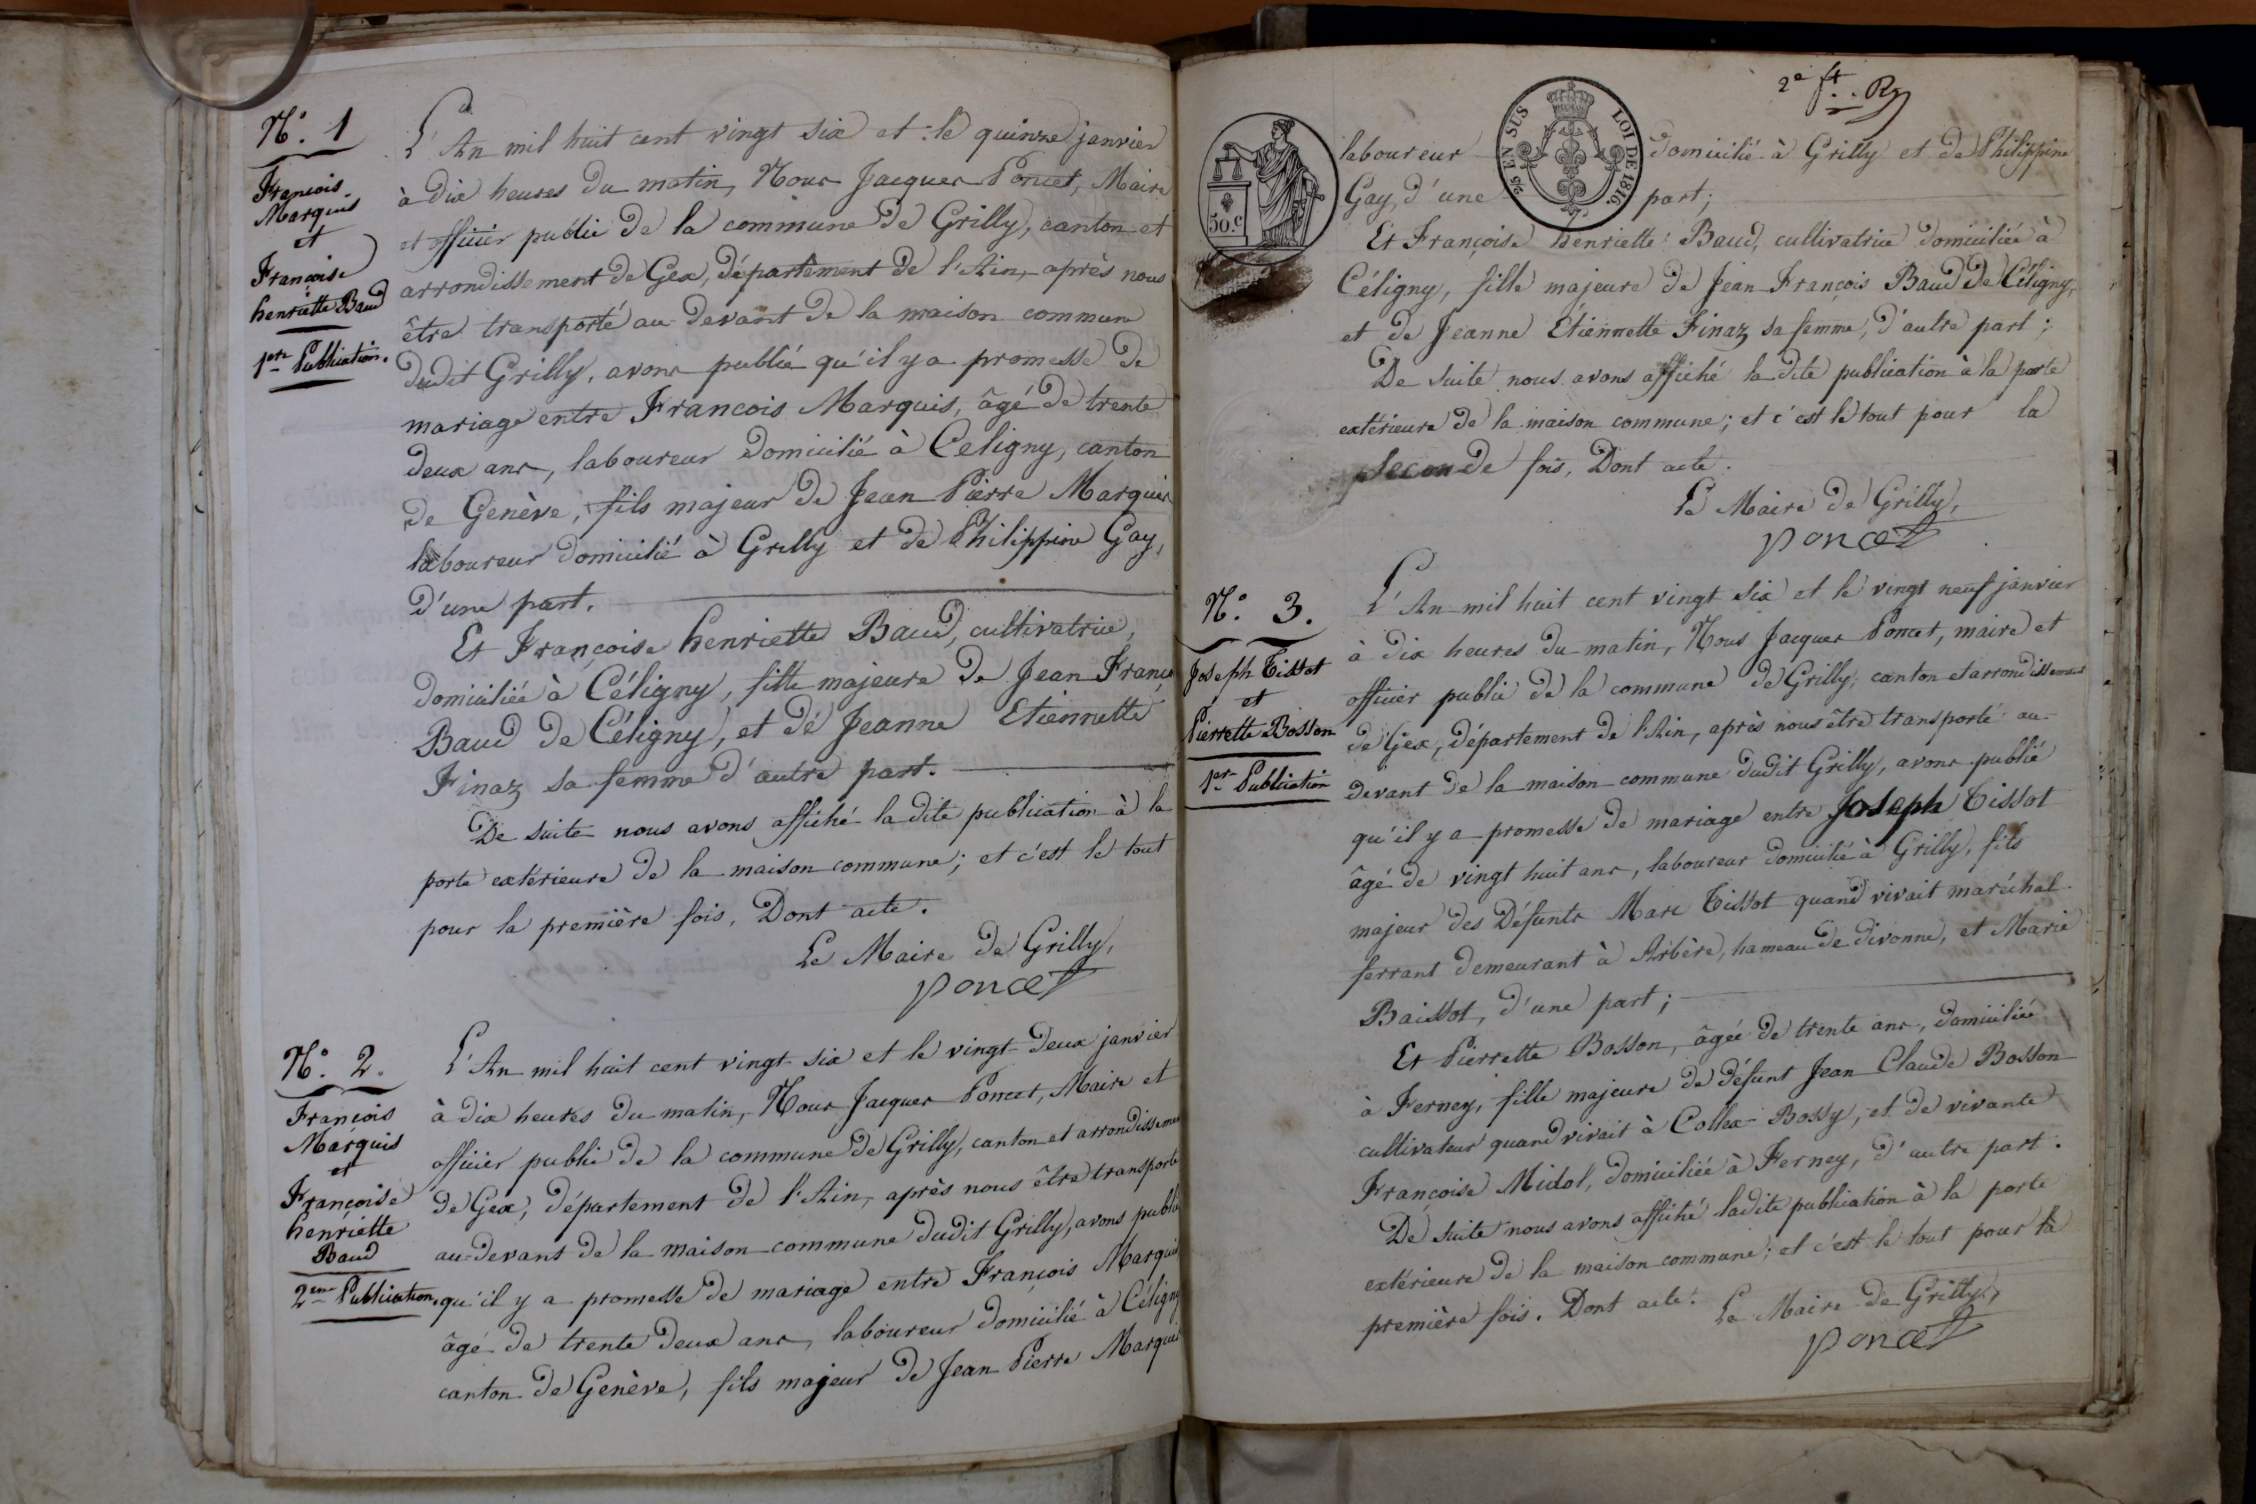 N.° 1
François
Marquis
et
Françoise
henriette Baud
1ere Publication.
L'An mil huit cent vingt six et le quinze janvier
à dix heures du matin, Nous Jacques Poncet, Maire
et officier public de la commune de Grilly, canton et
arrondissement de Gex, département de l'Ain, après nous
être transporté au devant de la maison commune
dudit Grilly, avons publié qu'il y a promesse de
mariage entre François Marquis, âgé de trente
deux ans, laboureur domicilié à Celigny, canton
de Genève, fils majeur de Jean Pierre Marquis
laboureur domicilié à Grilly et de Philippine Gay,
d'une part.
Et Françoise henriette Baud, cultivatrice,
domiciliée à Céligny, fille majeure de Jean Franc
Baud de Céligny, et de Jeanne Etiennette
Finaz sa femme d'autre part.
De suite nous avons affiché la dite publication à la
porte extérieure de la maison commune; et c'est le tout
pour la première fois, Dont acte.
Le Maire de Grilly,
Poncet
N.° 2.
François
Marquis
et
Françoise
henriette
Baud
2eme Publication.
L'An mil huit cent vingt six et le vingt-deux janvier
à dix heures du matin, Nous Jacques Poncet, Maire et
officier public de la commune de Grilly, canton et arrondisseme
de Gex, département de l'Ain, après nous être transporté
au-devant de la maison commune dudit Grilly, avons publié
qu'il y a promesse de mariage entre François Marquis
âgé de trente deux ans, laboureur domicilié à Céligny
canton de Genève, fils majeur de Jean Pierre Marquis
2e
50.c
2/5 EN SUS LOI DE 1816.
laboureur domicilié à Grilly et de Philippine
Gay, d'une part;
Et Françoise henriette Baud, cultivatrice domiciliée à
Céligny, fille majeure de Jean François Baud de Céligny,
et de Jeanne Etiennette Finaz sa femme, d'autre part;
De suite nous avons affiché la dite publication à la porte
extérieure de la maison commune; et c'est le tout pour la
seconde fois, Dont acte.
Le Maire de Grilly,
Poncet
N.° 3.
Joseph Tissot
et
Pierrette Bosson
1ere Publication
L'An mil huit cent vingt six et le vingt neuf janvier
à dix heures du matin, Nous Jacques Poncet, maire et
officier public de la commune de Grilly, canton et arrondissement
de Gex, département de l'Ain, après nous être transporté au-
devant de la maison commune dudit Grilly, avons publié
qu'il y a promesse de mariage entre Joseph Tissot
âgé de vingt huit ans, laboureur domicilié à Grilly, fils
majeur des défunts Marc Tissot quand vivait maréchal
ferrant demeurant à Arbère, hameau de divonne, et Marie
Baissot, d'une part;
Et Pierrette Bosson, âgée de trente ans, domiciliée
à Ferney, fille majeure de défunt Jean Claude Bosson
cultivateur quand vivait à Collex-Bossy, et de vivante
Françoise Midol, domiciliée à Ferney, d'autre part.
De suite nous avons affiché ladite publication à la porte
extérieure de la maison commune; et c'est le tout pour la
première fois. Dont acte.
Le Maire de Grilly,
Poncet